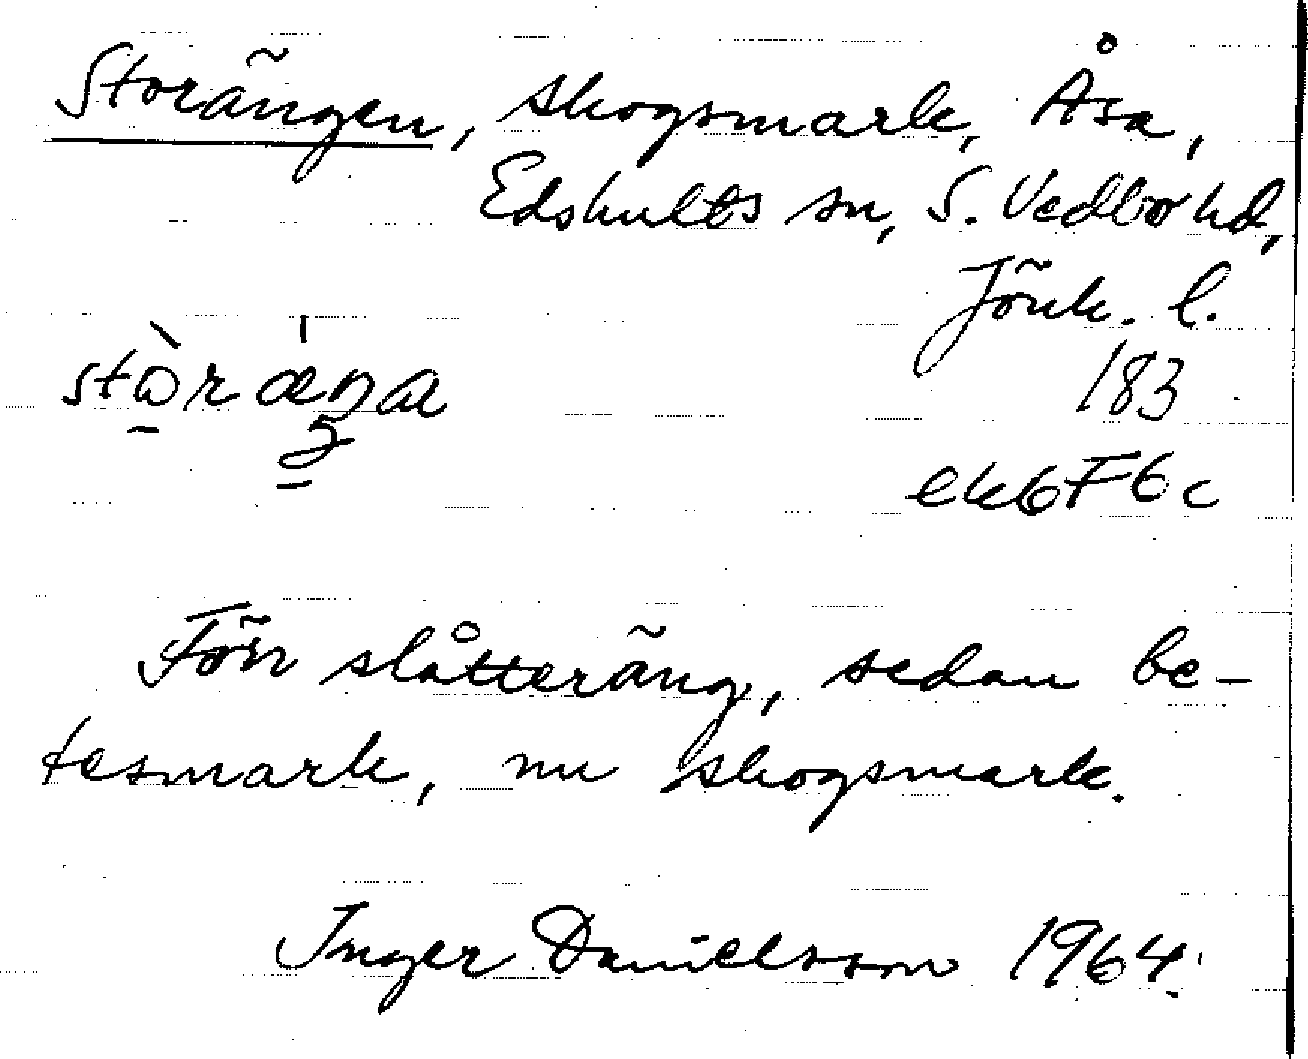 Storängen, skogsmark, Åsa,
Edshults sn, S. Vedbo hd,
Jönk. l.
183
ek6F6c
Förr slåtteräng, sedan be-
tesmark, nu skogsmark.
Inger Danielsson 1964.